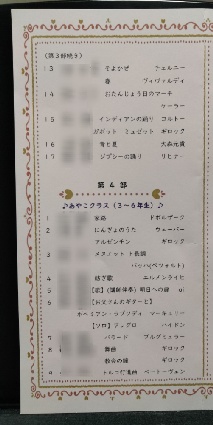 (第3部続き)
13 そよかぜ チェルニー
春 ヴィヴァルディ
14 おたんじょう日のマーチ
ケーラー
15 インディアンの踊り コルトー
ガボット ミュゼット ギロック
16 青と夏 大森元貴
17 ジプシーの踊り リヒナー
第4部
♪あやこクラス(3〜6年生)♪
1 家路 ドボルザーク
2 にんぎょうのうた ウェーバー
アルゼンチン ギロック
3 メヌエット ト長調
バッハ(ペツォルト)
4 紡ぎ歌 エルメンライヒ
5 【歌】(講師伴奏) 明日への扉
6
ボヘミアン・ラプソディ マーキュリー
【ソロ】アレグロ ハイドン
7 バラード ブルグミュラー
8 舞曲 ギロック
教会の鐘 ギロック
9 トルコ行進曲 ベートーヴェン